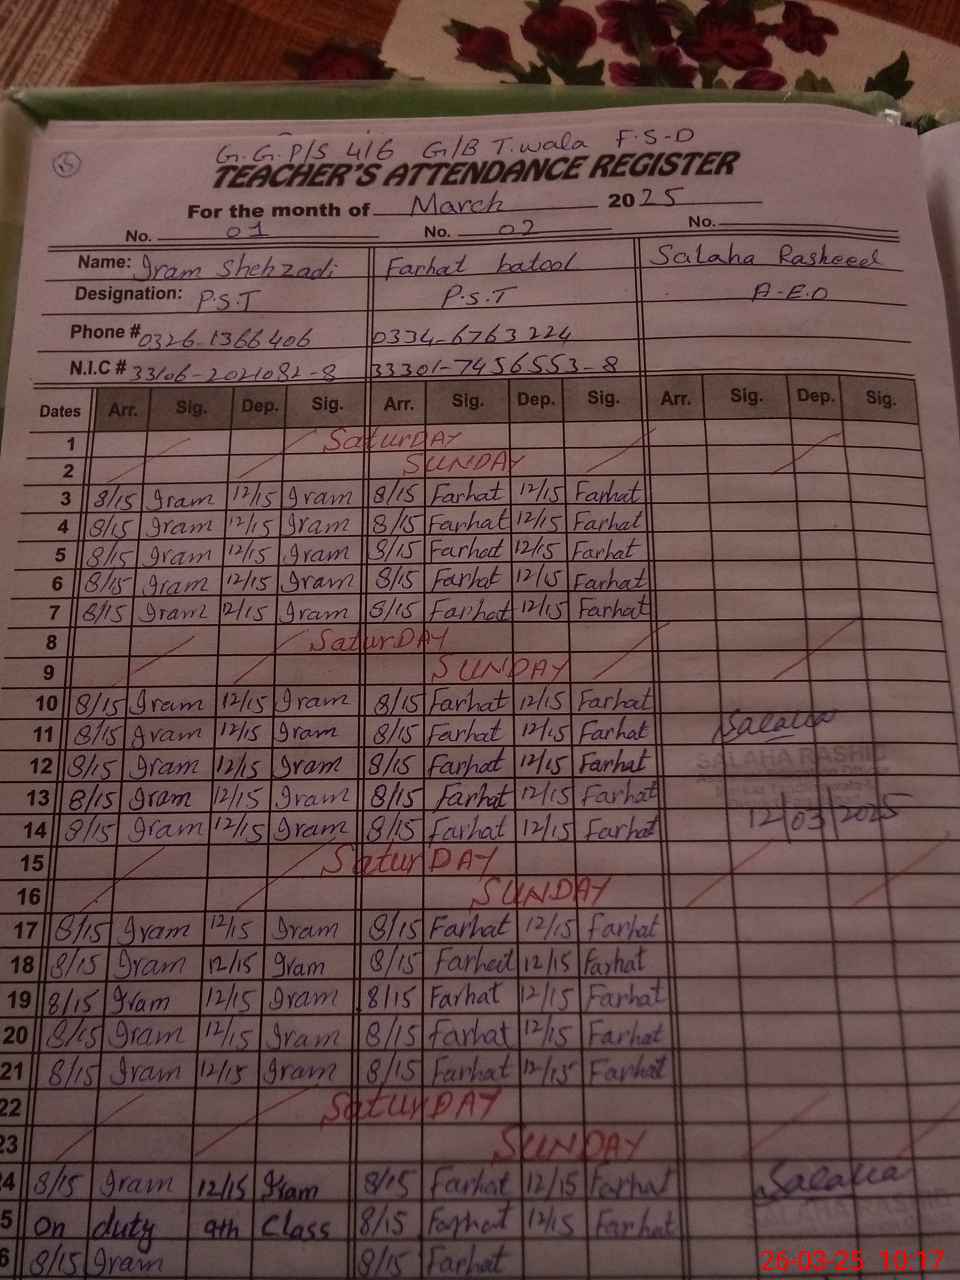 15
G.G.P/S 416 G/B T.wala F.S-D
TEACHER'S ATTENDANCE REGISTER
For the month of March 2025
No. 01 No. 02 No.
Name: Iram Shehzadi Farhat batool Salaha Rasheed
Designation: P.S.T P.S.T A-E.O
Phone # 0326-1366406 0334-6763224
N.I.C # 33106-2021082-8 33301-7456553-8
Dates Arr. Sig. Dep. Sig. Arr. Sig. Dep. Sig. Arr. Sig. Dep. Sig.
1 SaturDAY
2 SUNDAY
3 8/15 Iram 12/15 Iram 8/15 Farhat 12/15 Farhat
4 8/15 Iram 12/15 Iram 8/15 Farhat 12/15 Farhat
5 8/15 Iram 12/15 Iram 8/15 Farhat 12/15 Farhat
6 8/15 Iram 12/15 Iram 8/15 Farhat 12/15 Farhat
7 8/15 Iram 12/15 Iram 8/15 Farhat 12/15 Farhat
8 SaturDAY
9 SUNDAY
10 8/15 Iram 12/15 Iram 8/15 Farhat 12/15 Farhat
11 8/15 Iram 12/15 Iram 8/15 Farhat 12/15 Farhat Salaha
12 8/15 Iram 12/15 Iram 8/15 Farhat 12/15 Farhat SALAHA RASHID
13 8/15 Iram 12/15 Iram 8/15 Farhat 12/15 Farhat
14 8/15 Iram 12/15 Iram 8/15 Farhat 12/15 Farhat 12/03/2025
15 SaturDAY
16 SUNDAY
17 8/15 Iram 12/15 Iram 8/15 Farhat 12/15 Farhat
18 8/15 Iram 12/15 Iram 8/15 Farhat 12/15 Farhat
19 8/15 Iram 12/15 Iram 8/15 Farhat 12/15 Farhat
20 8/15 Iram 12/15 Iram 8/15 Farhat 12/15 Farhat
21 8/15 Iram 12/15 Iram 8/15 Farhat 12/15 Farhat
22 SaturDAY
23 SUNDAY
4 8/15 Iram 12/15 Iram 8/15 Farhat 12/15 Farhat Salaha
5 on duty 9th Class 8/15 Farhat 12/15 Farhat SALAHA RASHID
6 8/15 Iram 8/15 Farhat
26-03-25 10:17